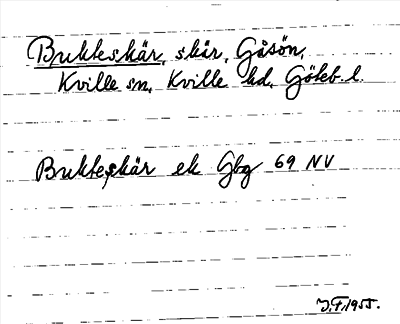 Bukteskär, skär, Gåsön,
Kville sn, Kville hd, Göteb. l.
Bukteskär ek Gbg 69 NV
J.F. 1955.